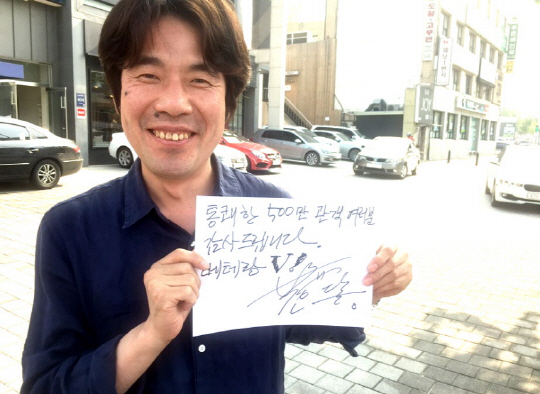 통쾌한 500만 관객 여러분
감사드립니다.
베테랑 V!